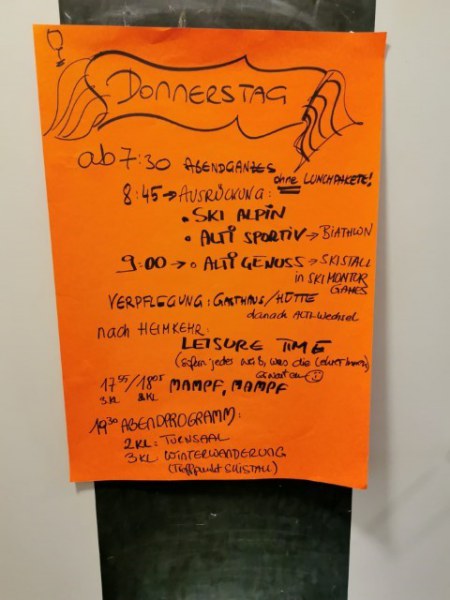 DONNERSTAG
ab 7:30
ohne LUNCHPAKETE!
8:45 → AUSRÜCKUNG:
• SKI ALPIN
• ALTI SPORTIV → BIATHLON
9:00 → • ALTI GENUSS → SKISTALL
in SKIMONTUR
GAMES
VERPFLEGUNG: GASTHAUS/HÜTTE
danach ALTI-Wechsel
nach HEIMKEHR:
LEISURE TIME
(sofern jedes weiß, was die
17⁵⁵/18⁰⁵ MAMPF, MAMPF
3KL 2KL
19³⁰ ABENDPROGRAMM:
2KL: TURNSAAL
3KL WINTERWANDERUNG
(Treffpunkt SKISTALL)